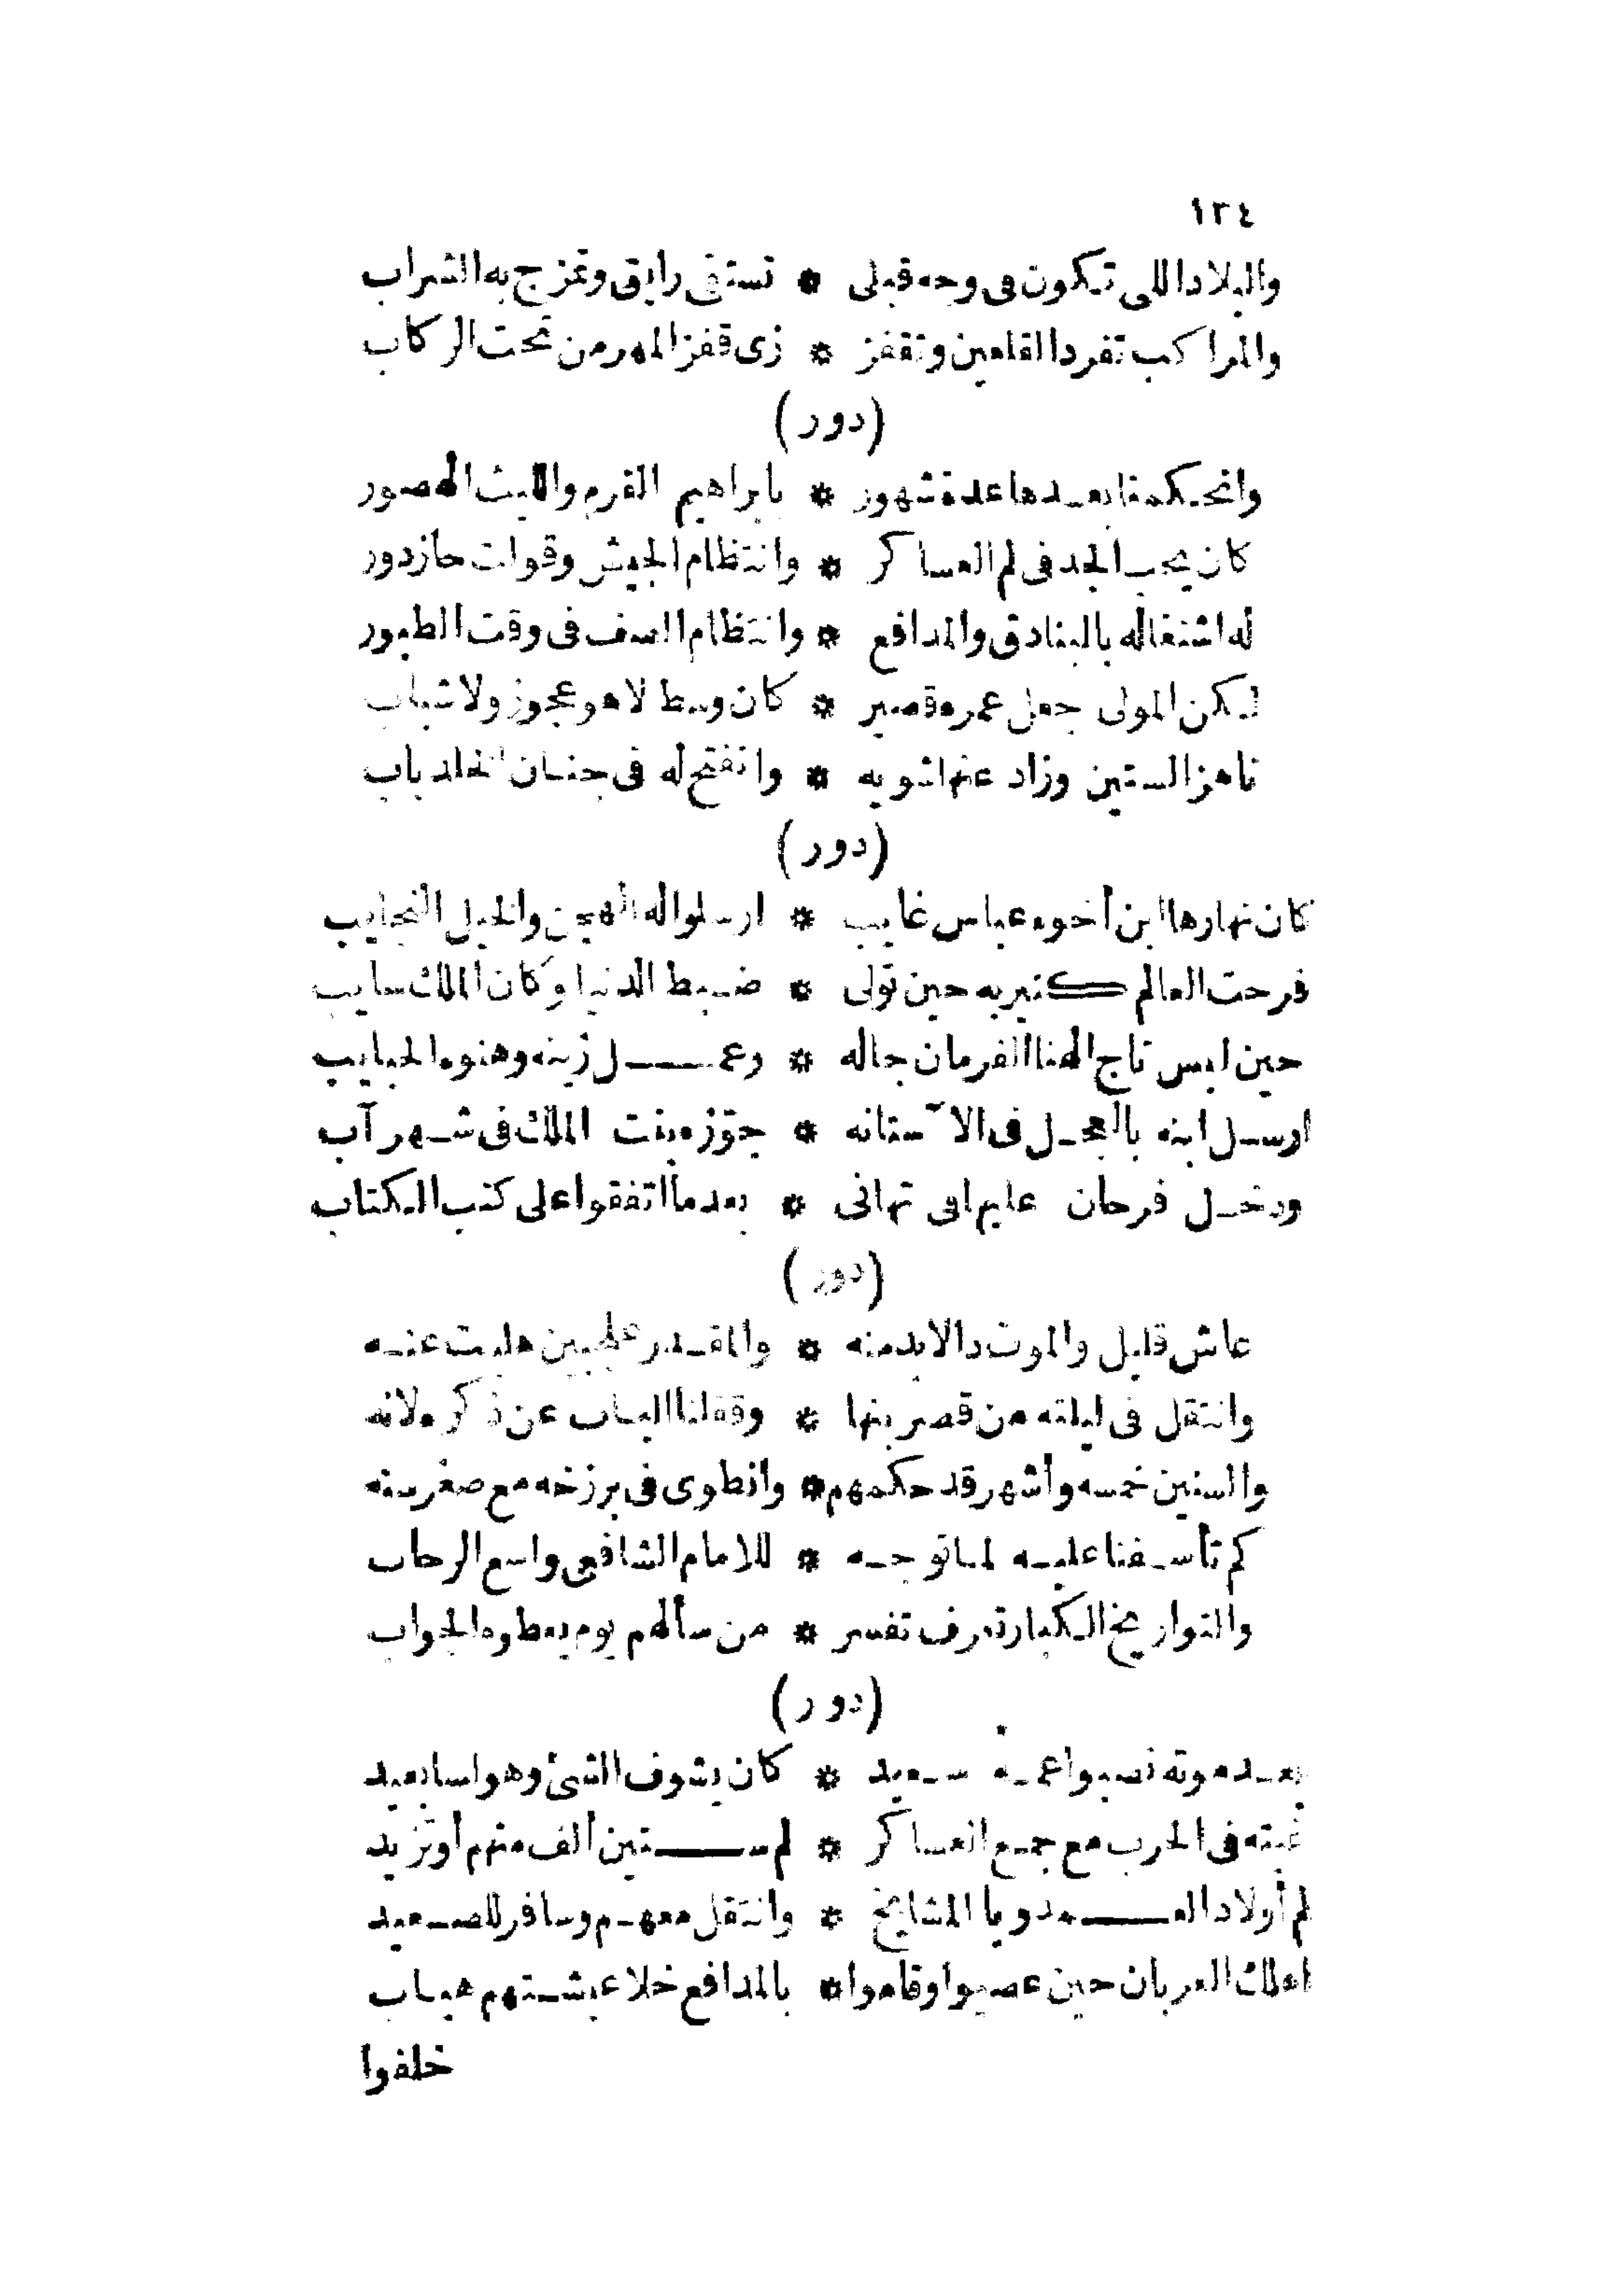 ١٣٤
والبلاد اللى تكون فى وجه قبلى * تستقى رايق وتمزج به الشراب
والمراكب تفرد القلعين وتقفز * زى قفز المهر من تحت الركاب
(دور)
وانحكمنا بعدها عدة شهور * بابراهيم القرم والليث الهصور
كان يحب الجد فى لم العساكر * وانتظام الجيش وقوات حاز دور
له اشتغاله بالبنادق والمدافع * وانتظام الصف فى وقت الطبور
لكن المولى جعل عمره قصير * كان وسط لا هو عجوز ولا شباب
ناهز الستين وزاد عنها شويه * وانفتح له فى جنان الخلد باب
(دور)
كان نهارها ابن أخوه عباس غايب * ارسلوا له الهجن والخيل النجايب
فرحت العالم كثير به حين تولى * ضبط الدنيا وكان الملك سايب
حين لبس تاج الهنا الفرمان جاله * وعمل زينه وهنوه الحبايب
ارسل ابنه بالعجل فى الآستانه * جوّزه بنت الملك فى شهر آب
ودخل فرحان عليها فى تهانى * بعدما اتفقوا على كتب الكتاب
(دور)
عاش قليل والموت دا لابد منه * والمقدر عالجبين هلبت عنه
وانتقل فى ليلته من قصر بنها * وقفلنا الباب عن ذكره لانه
والسنين خمسه وأشهر قد حكمهم * وانطوى فى برزخه مع صغر سنه
كم تأسفنا عليه لما توجه * للامام الشافعى واسع الرحاب
والتواريخ الكبار تعرف تفسر * من سألهم يوم يعطوه الجواب
(دور)
بعد موته نصبوا عمه سعيد * كان يشوف الشئ وهو لسا بعيد
غيته فى الحرب مع جمع العساكر * لم ستين ألف منهم أو تزيد
لم أولاد العمد ويا المشايخ * وانتقل معهم وسافر للصعيد
اهلك العربان حين عصيوا وقاموا * بالمدافع خلا عيشتهم هباب
خلفوا